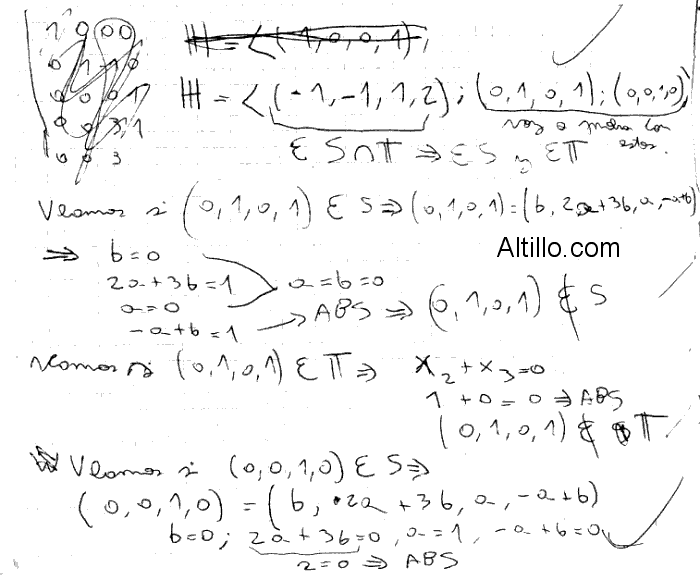 1 0 0 0
ℍ = <(-1,0,0,1),
ℍ = <(-1,-1,1,2); (0,1,0,1); (0,0,1,0)
voy a con estos.
∈ S∩Π ⇒ ∈ S y ∈ Π
Veamos si (0,1,0,1) ∈ S ⇒ (0,1,0,1) = (b, 2a+3b, a, -a+b)
⇒ b=0
2a+3b=1
a=0
-a+b=1
a=b=0
→ ABS ⇒ (0,1,0,1) ∉ S
Altillo.com
Veamos si (0,1,0,1) ∈ Π ⇒ x₂+x₃=0
1+0=0 ⇒ ABS
(0,1,0,1) ∉ Π
Veamos si (0,0,1,0) ∈ S ⇒
(0,0,1,0) = (b, 2a+3b, a, -a+b)
b=0; 2a+3b=0, a=1, -a+b=0
2=0 ⇒ ABS